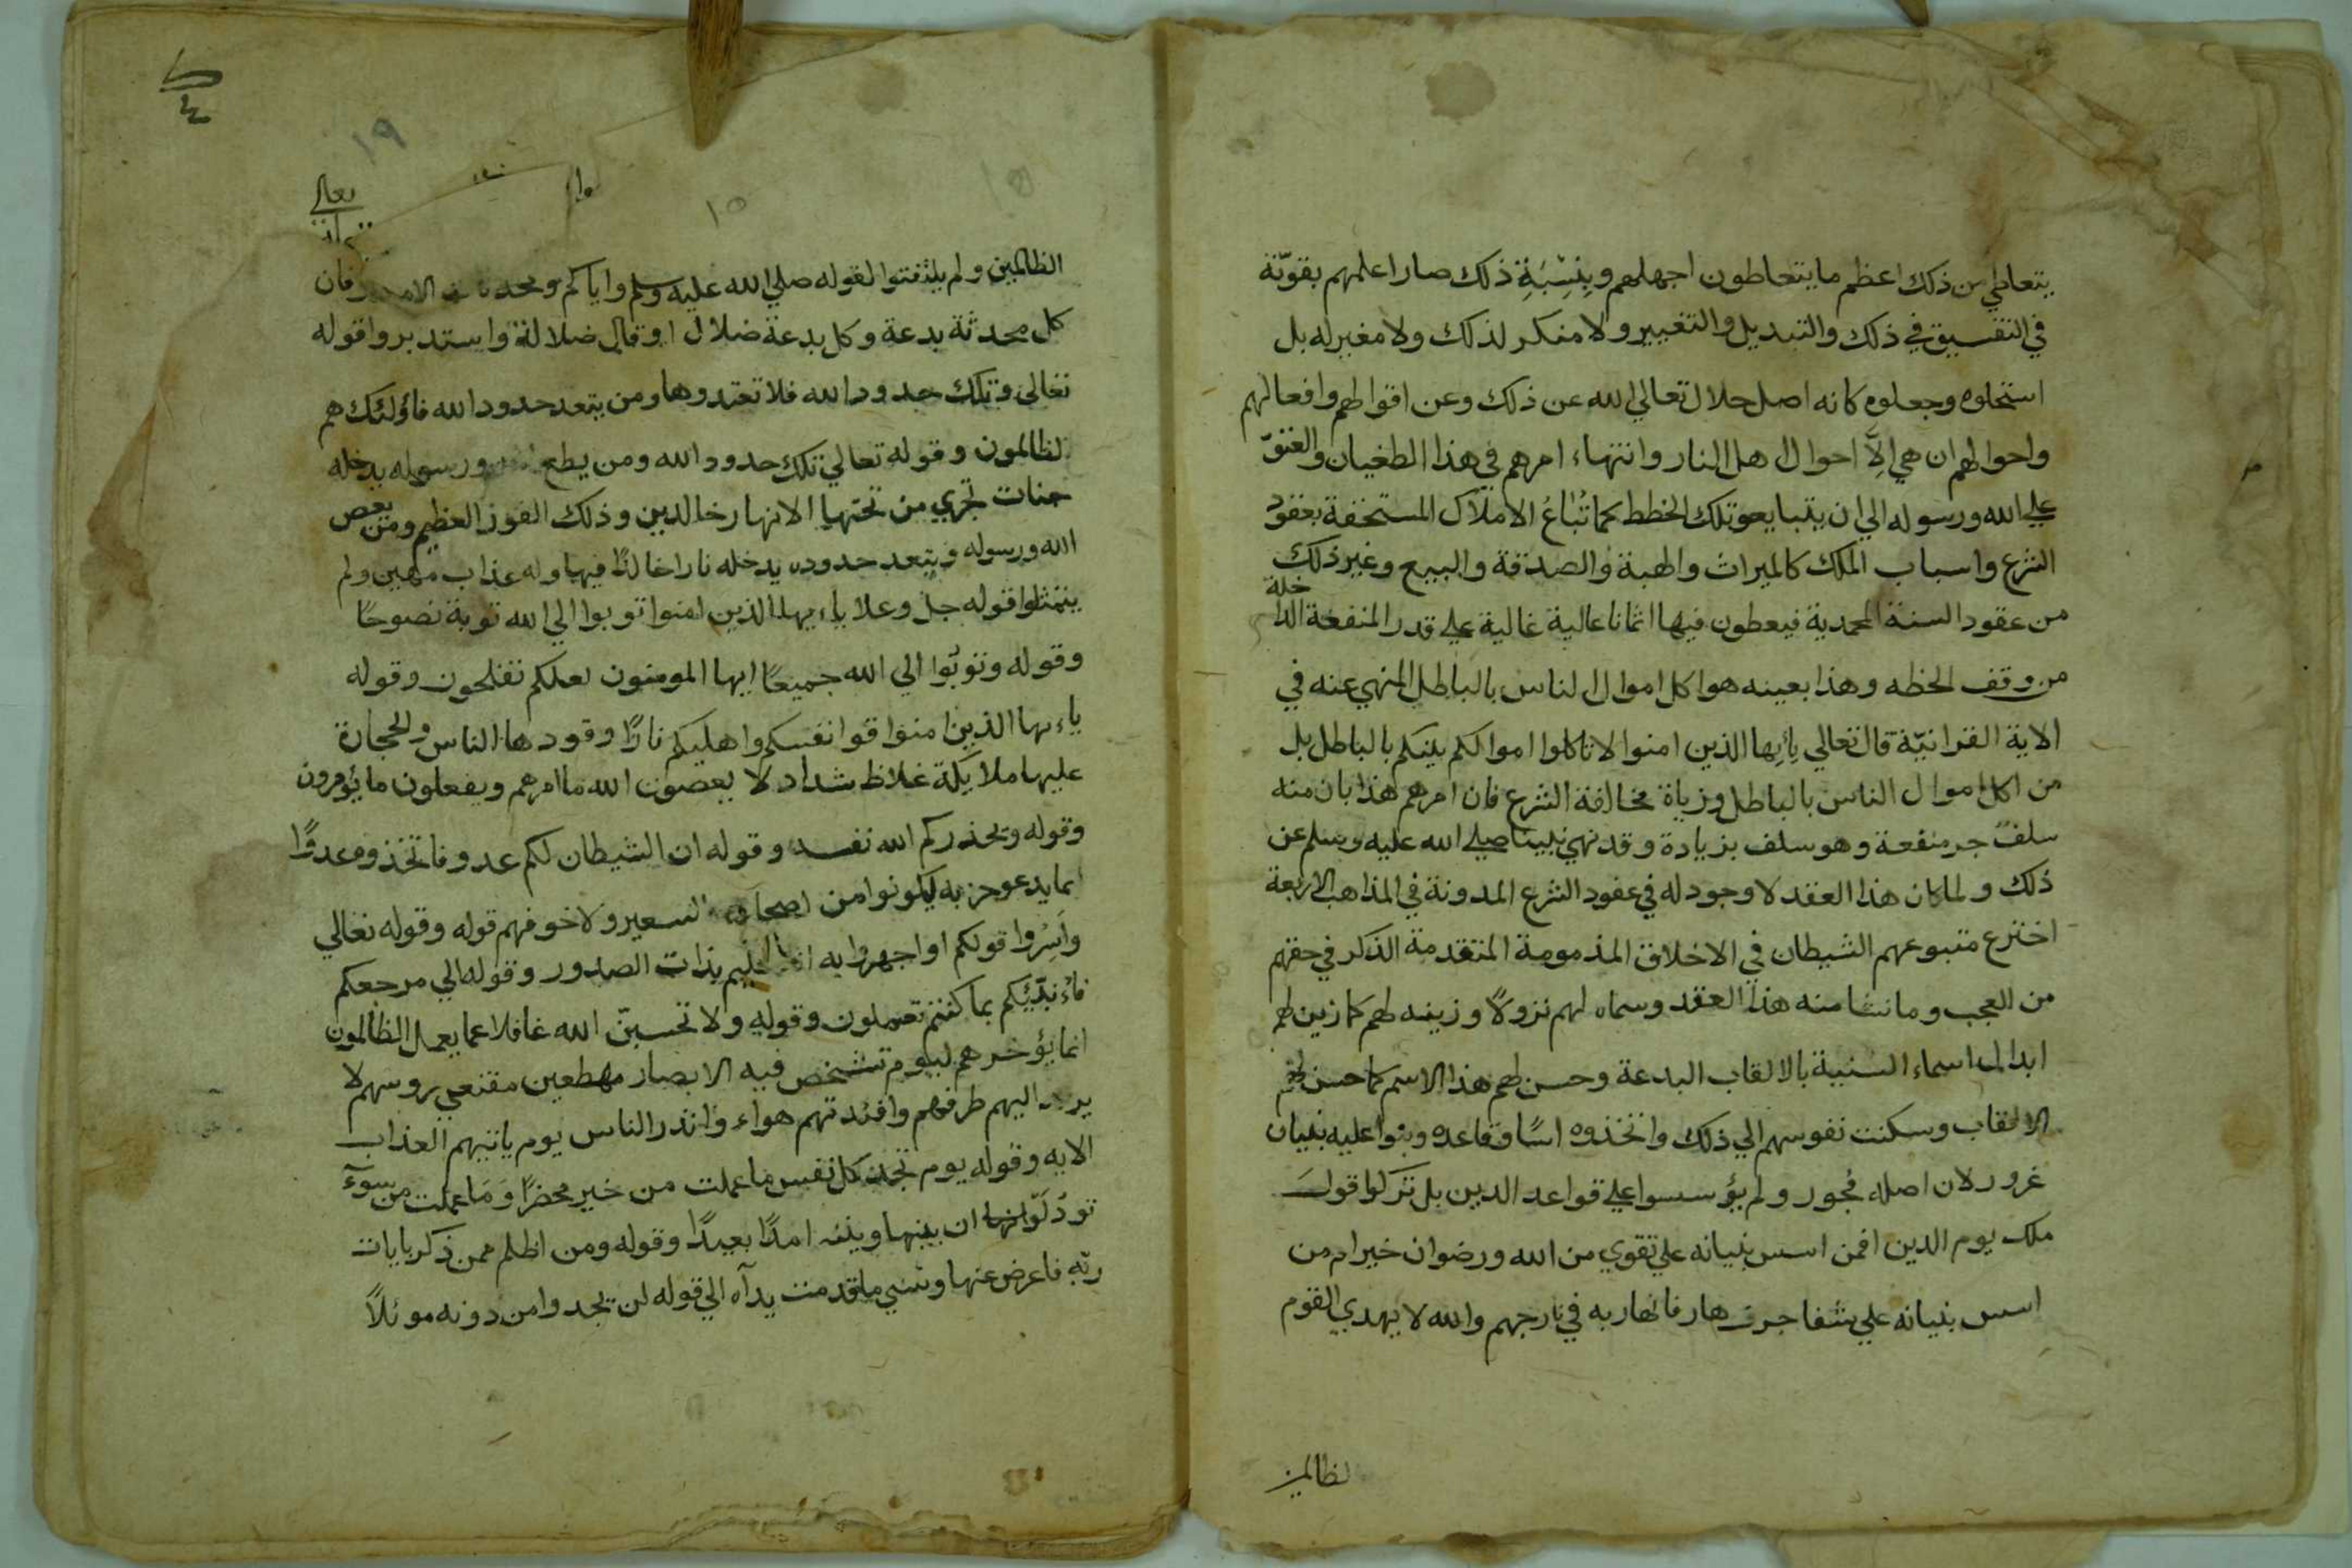 يتعاطي من ذلك اعظم ما يتعاطون اجهلهم وبنسبة ذلك صار اعلمهم بقوته
في التفسيق في ذلك والتبديل والتغيير ولا منكر لذلك ولا مغير له بل
استحلوه وجعلوه كانه اصل حلال تعالي الله عن ذلك وعن اقوالهم وافعالهم
واحوالهم ان هي الا احوال اهل النار وانتهاء امرهم في هذا الطغيان والعتوّ
علي الله ورسوله الي ان يتبايعو تلك الخطط كما تُباعُ الاملاك المستحقة بعقود
الشرع واسباب الملك كالميراث والهبة والصدقة والبيع وغير ذلك
من عقود السنة المحمدية فيعطون فيها اثمانا عالية غالية علي قدر المنفعة الدا
خلة
من وقف الخطه وهذا بعينه هو اكل اموال الناس بالباطل المنهي عنه في
الاية القرانيّة قال تعالي يأيها الذين امنوا لا تاكلوا اموالكم بينكم بالباطل بل
من اكل اموال الناس بالباطل وزياة مخالفة الشرع فان امرهم هذا بان منه
سلف جر منفعة وهو سلف بزيادة وقد نهي نبينا صلي الله عليه وسلم عن
ذلك ولما كان هذا العقد لا وجود له في عقود الشرع المدونة في المذاهب الاربعة
اخترع متبوعهم الشيطان في الاخلاق المذمومة المتقدمة الذكر في حقهم
من العجب وما نشا منه هذا العقد وسماه لهم نزولاً وزينه لهم كما زين لهم
ابدال اسماء السنية بالالقاب البدعة وحسن لهم هذا الاسم كما حسن لهم
الالقاب وسكنت نفوسهم الي ذلك واتخذوه اسًا وقاعده وبنوا عليه بنيان
غرور لان اصله فُجور ولم يؤسسوا علي قواعد الدين بل تركوا قول
ملك يوم الدين افمن اسس بنيانه علي تقوي من الله ورضوان خير ام من
اسس بنيانه علي شفا جرف هار فانهار به في نار جهم والله لا يهدي القوم
لظالمين
١٩
١٥
١٥
تعالي
الظالمين ولم يلتفتوا لقوله صلي الله عليه وسلم واياكم ومحدثات الامور فان
كل محدثة بدعة وكل بدعة ضلال او قال ضلالة واستدبروا قوله
تعالي وتلك حدود الله فلا تعتدوها ومن يتعد حدود الله فاؤلئك هم
لظالمون وقوله تعالي تلك حدود الله ومن يطع ورسوله يدخله
جنات تجري من تحتها الانهار خالدين وذلك الفوز العظيم ومن يعص
الله ورسوله ويتعد حدوده يدخله نارا خالدًا فيها وله عذاب مهين ولم
يتمثلوا قوله جل وعلا ياءيها الذين امنوا توبوا الي الله توبة نصوحًا
وقوله وتوبُوا الي الله جميعًا ايها المومنون لعلكم تفلحون وقوله
ياءيها الذين امنوا قوا انفسكم واهليكم نارًا وقودها الناس والحجارة
عليها ملايكة غلاظ شداد لا يعصون الله ما امرهم ويفعلون ما يؤمرون
وقوله ويحذركم الله نفسه وقوله ان الشيطان لكم عدو فاتخذوه عدوًّا
انما يدعو حزبه ليكونوا من اصحاب السعير ولا خوفهم قوله وقوله تعالي
واَسِرُّوا قولكم او اجهروا به انه عليم بذات الصدور وقوله الي مرجعكم
فاءنبّئكم بما كنتم تعملون وقوله ولا تحسبنّ الله غافلا عما يعمل الظالمون
انما يؤخرهم ليوم تشخص فيه الابصار مهطعين مقنعي روسهم لا
يرتد اليهم طرفهم وافئدتهم هواء وانذر الناس يوم ياتيهم العذاب
الايه وقوله يوم تجد كل نفس ما عملت من خير محضرًا وَمَا عملت من سوءٓ
تودّ لَوْ انها ان بينها وبينه امدًا بعيدًا وقوله ومن اظلم ممن ذكر بايات
ربّه فاعرض عنها ونسي ما قدمت يدآه الي قوله لن يجدوا من دونه موئلاً